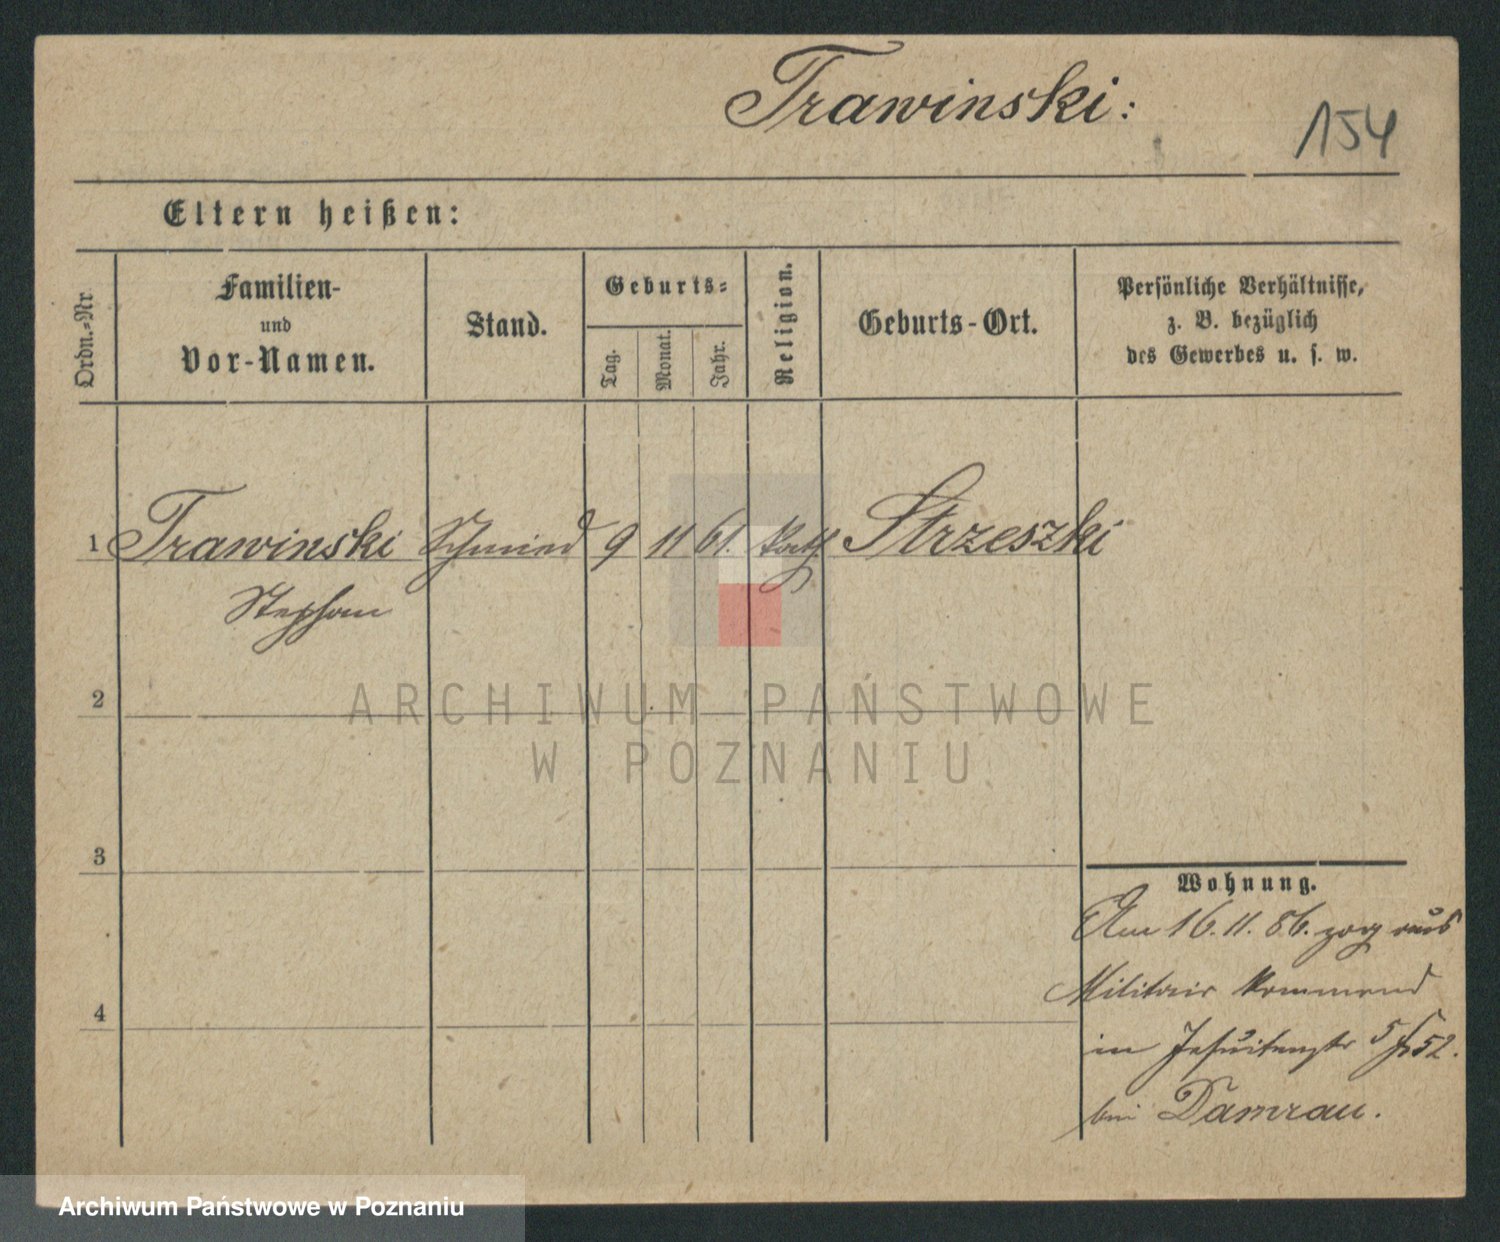 Trawinski:
154
Eltern heißen:
Ordn.=Nr.
Familien-
und
Vor-Namen.
Stand.
Geburts=
Tag.
Monat.
Jahr.
Religion.
Geburts-Ort.
Persönliche Verhältnisse,
z. B. bezüglich
des Gewerbes u. s. w.
1 Trawinski Schmied 9 11 61. kath Strzeszki
Stephan
2
ARCHIWUM PAŃSTWOWE
W POZNANIU
3
Wohnung.
Am 16.11.86. zog aus
Militair kommend
in Jesuitenstr 5 52.
4
bei Damrau.
Archiwum Państwowe w Poznaniu